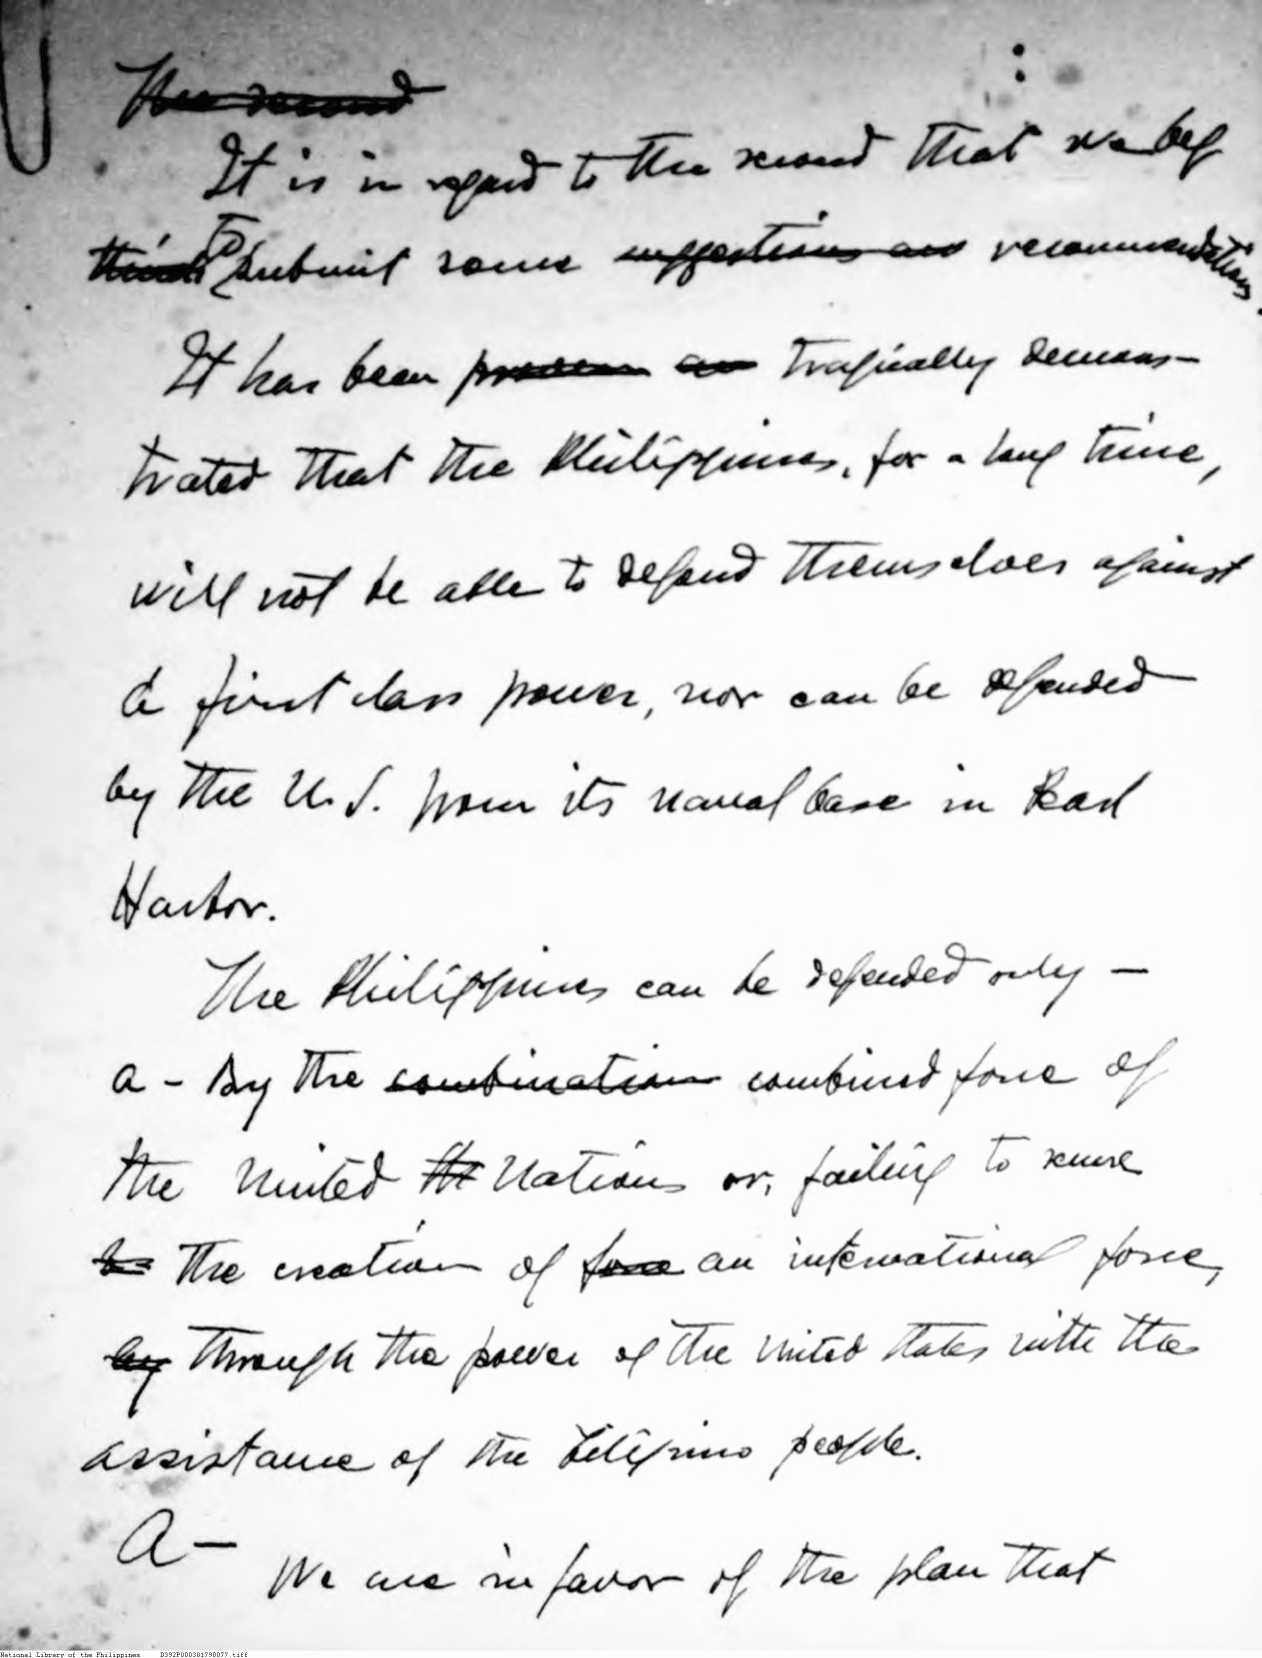 The second
It is in regard to the second that we beg
think to submit some suggestions and recommendations.
It has been proven an tragically demons-
trated that the Philippines, for a long time,
will not be able to defend themselves against
a first class power, nor can be defended
by the U.S. from its naval base in Pearl
Harbor.
The Philippines can be defended only -
a - By the combination combined force of
the United the Nations or, failing to secure
to the creation of force an international force,
by through the power of the United States with the
assistance of the Filipino people.
A - We are in favor of the plan that
National Library of the Philippines D392P000301790077.tiff